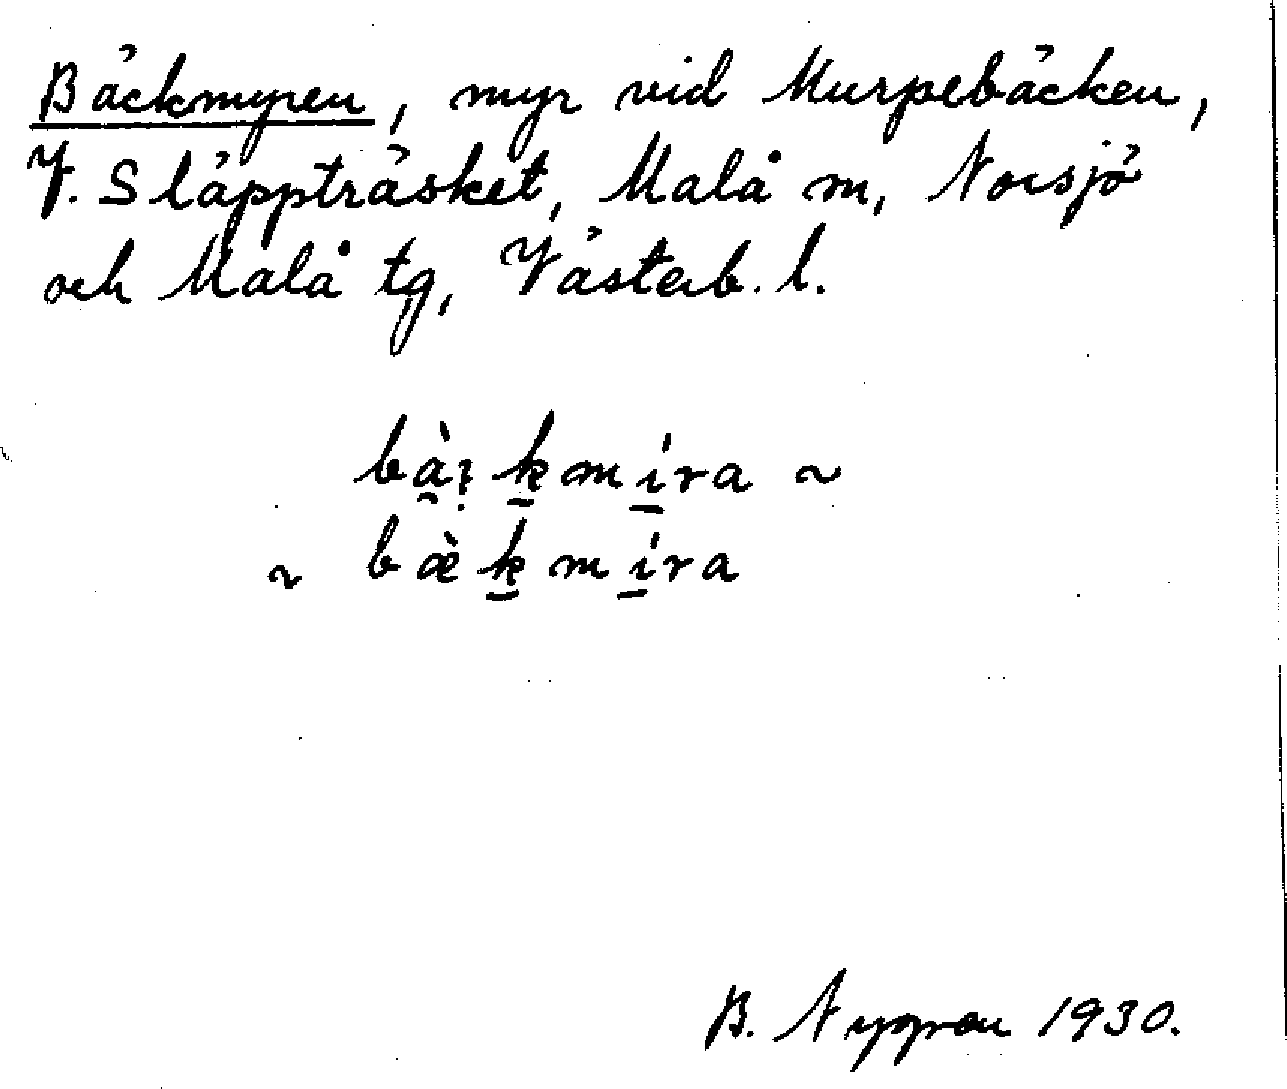 Bäckmyren, myr vid Murpebäcken,
V. Släppträsket, Malå m, Norsjö
och Malå tg, Västerb. l.
bà̯ꞣ̱mí̱ra ~
~ bæ̀ḵmí̱ra
B. Nygren 1930.